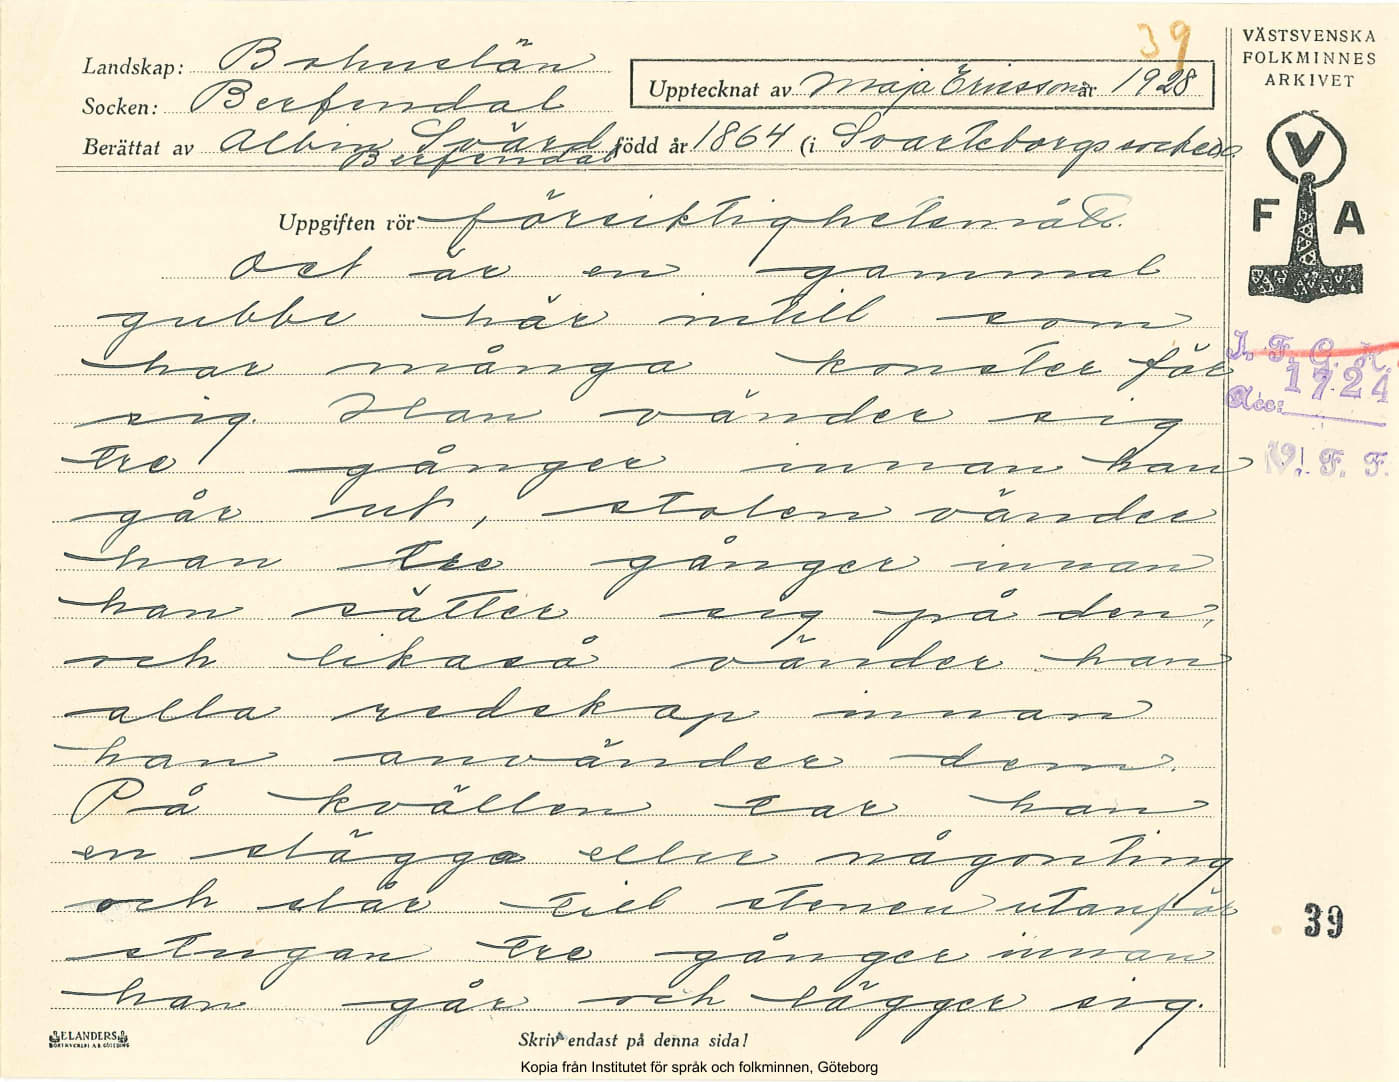 39
VÄSTSVENSKA
FOLKMINNES
ARKIVET
Landskap: Bohuslän
Socken: Berfendal
Upptecknat av Maja Ericsson år 1928
Berättat av Albin Svärd född år 1864 (i Svarteborgs socken).
Berfendal
V
F A
Uppgiften rör försiktighetsmått.
Det är en gammal
gubbe här intill som
har många konster för
sig. Han vänder sig
tre gånger innan han
går ut, stolen vänder
han tre gånger innan
han sätter sig på den,
och likaså vänder han
alla redskap innan
han använder dem.
På kvällen tar han
en slägga eller någonting
och slår till stenen utanför
stugan tre gånger innan
han går och lägger sig.
I. F. G. H.
Acc: 1724
V. F. F.
39
ELANDERS
BOKTRYCKERI A.B. GÖTEBORG
Skriv endast på denna sida!
Kopia från Institutet för språk och folkminnen, Göteborg